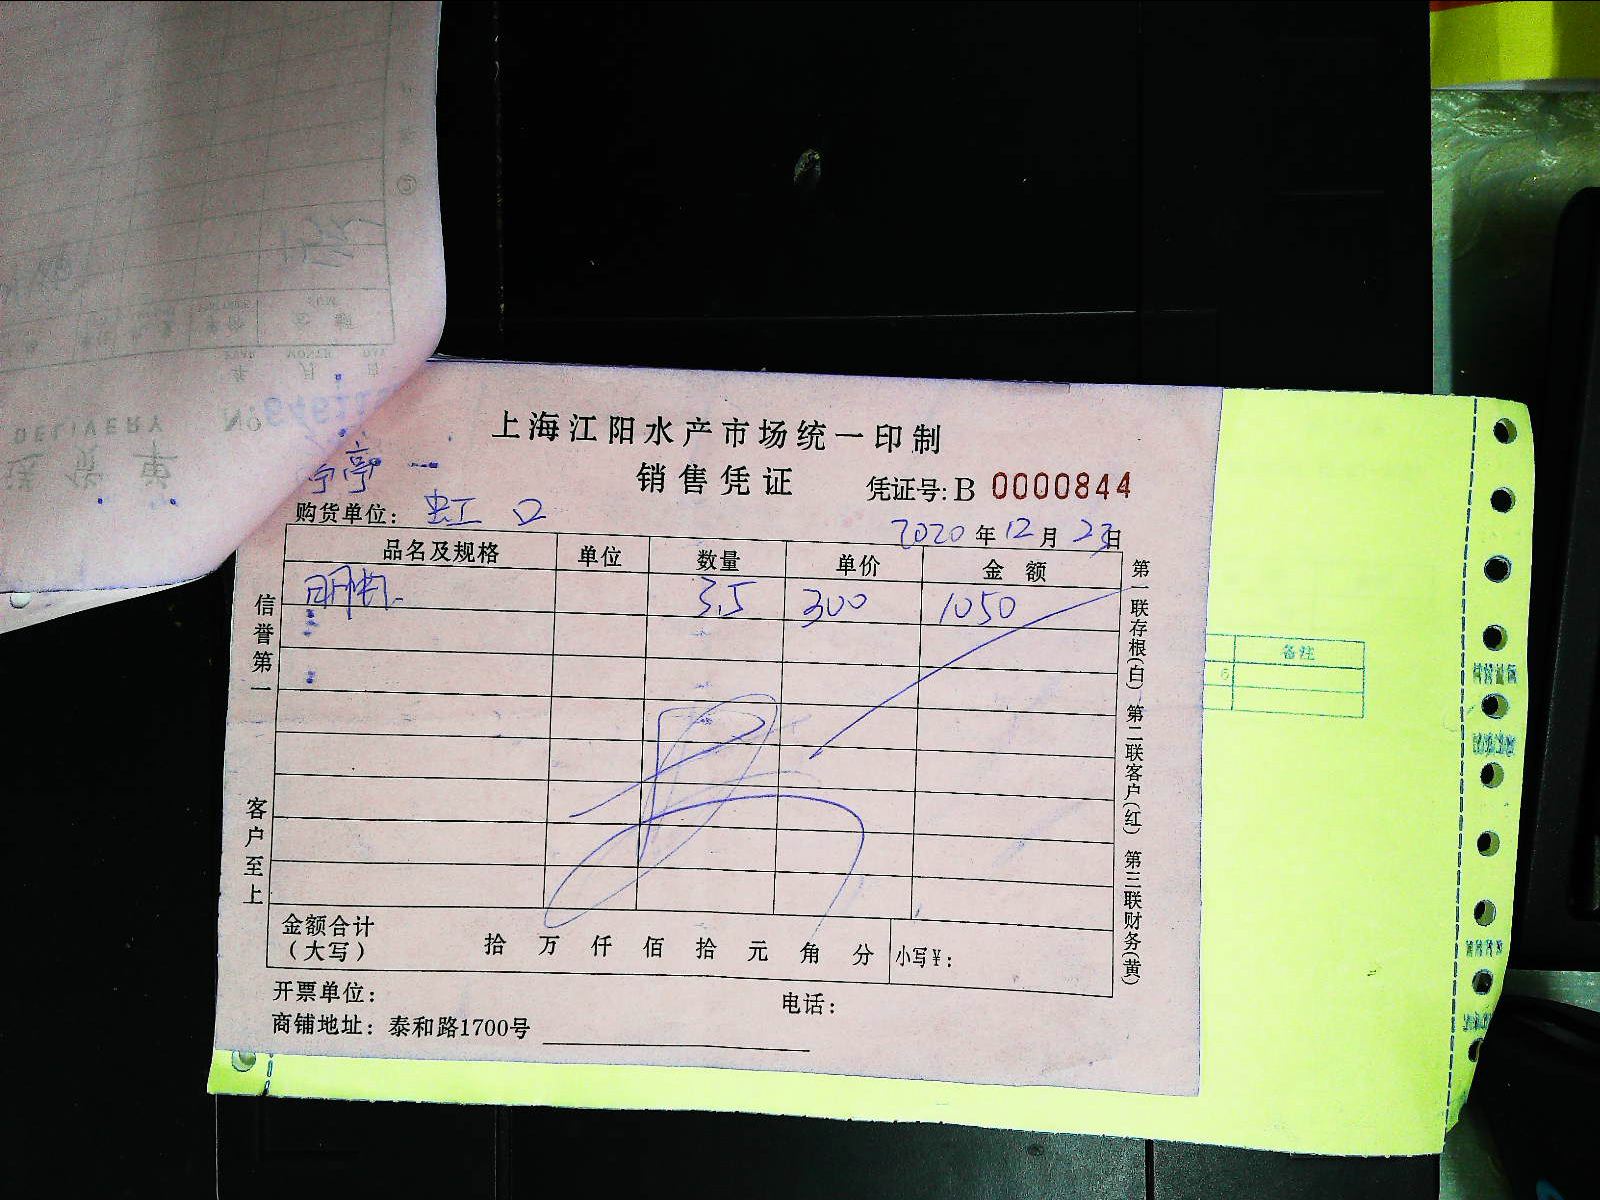 DELIVERY
送货单
上海江阳水产市场统一印制
销售凭证
凭证号: B 0000844
购货单位: 虹口
2020年12月23日
品名及规格 单位 数量 单价 金额
明虾 3.5 300 1050
信誉第一
客户至上
第一联存根(白) 第二联客户(红) 第三联财务(黄)
备注
金额合计
(大写) 拾 万 仟 佰 拾 元 角 分 小写¥:
开票单位: 电话:
商铺地址: 泰和路1700号